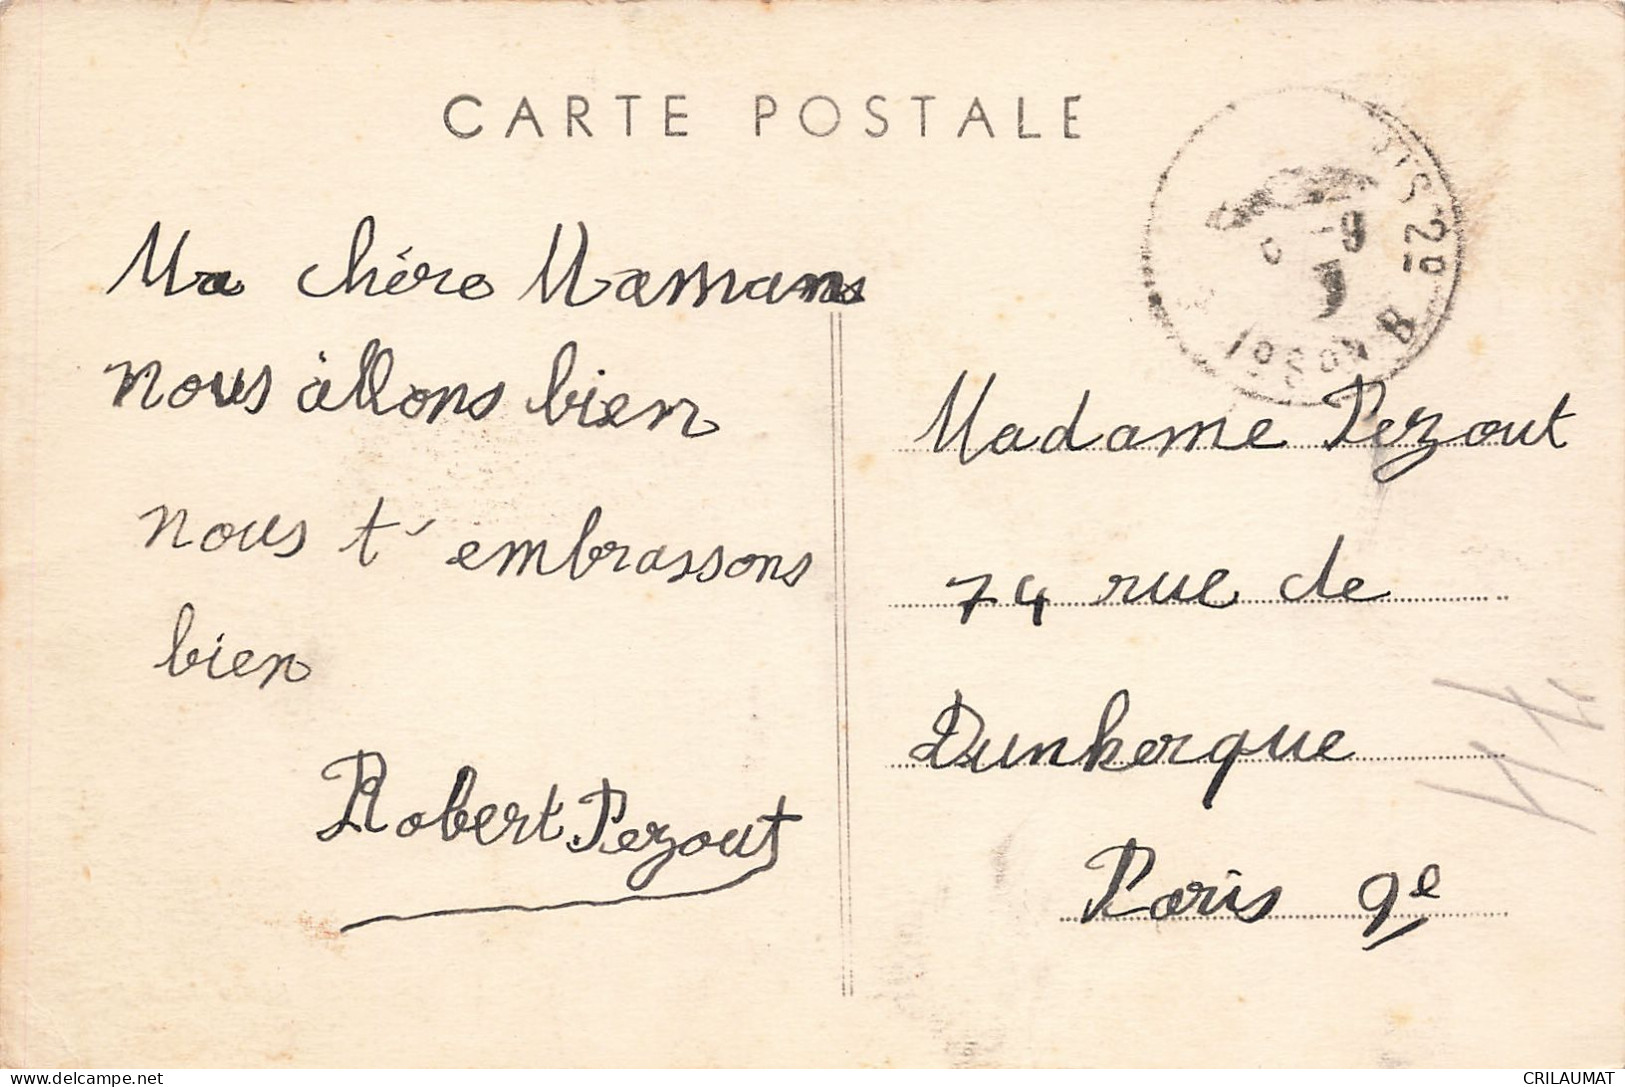 CARTE POSTALE
Ma chère Maman
nous àllons bien
nous t'embrassons
bien
Robert Pezout
Madame Pezout
74 rue de
Dunkerque
Paris 9e
delcampe.net
CRILAUMAT